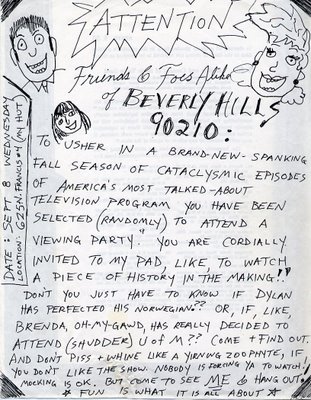 ATTENTION
Friends & Foes Alike
of BEVERLY HILLS
90210:
TO USHER IN A BRAND-NEW-SPANKING
FALL SEASON OF CATACLYSMIC EPISODES
OF AMERICA'S MOST TALKED-ABOUT
TELEVISION PROGRAM YOU HAVE BEEN
SELECTED (RANDOMLY) TO ATTEND A
VIEWING PARTY." YOU ARE CORDIALLY
INVITED TO MY PAD, LIKE, TO WATCH
A PIECE OF HISTORY IN THE MAKING!"
DON'T YOU JUST HAVE TO KNOW IF DYLAN
HAS PERFECTED HIS NORWEGIAN?? OR, IF, LIKE,
BRENDA, OH-MY-GAWD, HAS REALLY DECIDED TO
ATTEND (SHUDDER) U OF M?? COME + FIND OUT.
AND DON'T PISS + WHINE LIKE A YIRNING ZOOPHYTE, IF
YOU DON'T LIKE THE SHOW. NOBODY IS FORCING YA TO WATCH!
MOCKING IS OK. BUT COME TO SEE ME & HANG OUT.
FUN IS WHAT IT IS ALL ABOUT
DATE: SEPT 8 WEDNESDAY
LOCATION: 625 N. FRANCIS #4 (MY HUT)